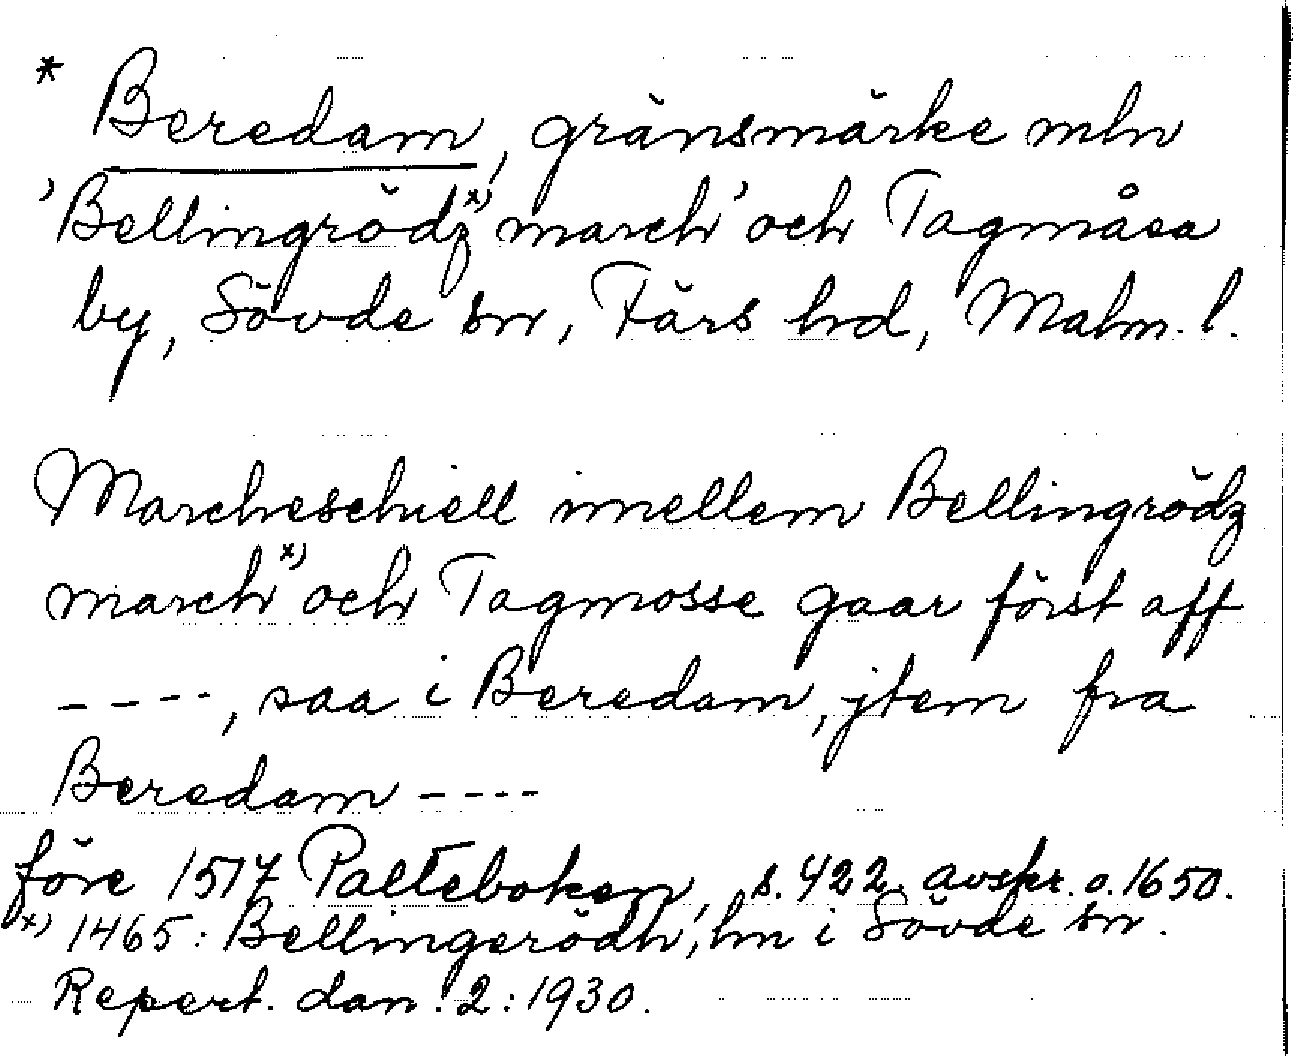 * Beredam, gränsmärke mln
'Bellingrödz x) march' och Tagmåsa
by, Sövde sn, Färs hd, Malm. l.
Marcheschiell imellem Bellingrödz
march x) och Tagmosse gaar först aff
----, saa i Beredam, jtem fra
Beredam ----
före 1517 Palteboken, s. 422, avskr. o. 1650.
x) 1465: Bellingerödh, hn i Sövde sn.
Repert. dan. 2: 1930.